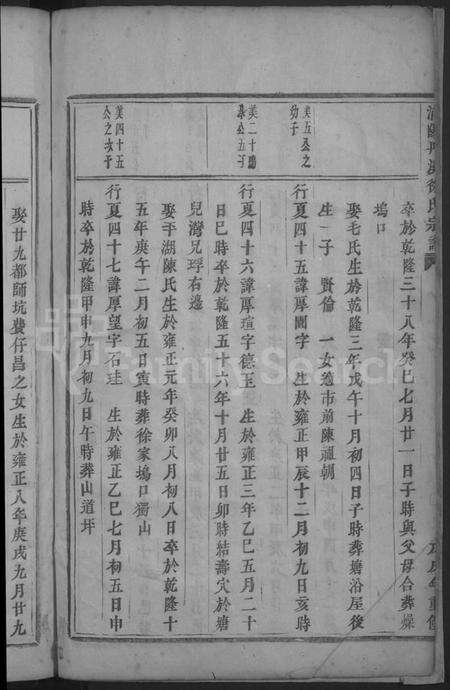 卒於乾隆三十八年癸巳七月廿一日子時與父母合葬燥
塢口
娶毛氏生於乾隆三年戊午十月初四日子時葬塘沿屋後
生一子 賢倫 一女適市前陳
美五公之
幼子
行夏四十五諱厚 字 生於雍正甲辰十二月初九日亥時
美二十
公五子
行夏四十六諱厚瑄字德玉 生於雍正三年乙巳五月二十
日巳時卒於乾隆五十六年十月廿五日卯時結壽穴於塘
兒灣兄 右邊
娶平湖陳氏生於雍正元年癸卯八月初八日卒於乾隆十
五年庚午二月初五日寅時葬徐家塢口獨山
美四十五
公之次子
行夏四十七諱厚望字石 生於雍正乙巳七月初五日申
時卒於乾隆甲申九月初九日午時葬山道坪
娶廿九都師坑龔仔昌之女生於雍正八年庚戌九月廿九
FamilySearch